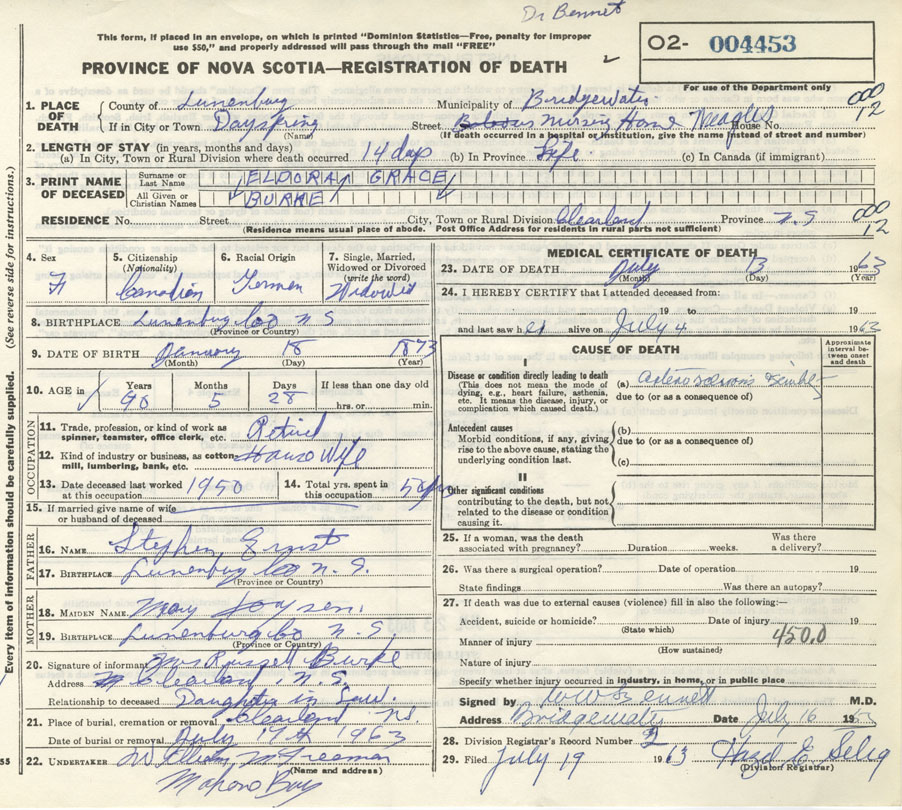 Dr Bennet
This form, if placed in an envelope, on which is printed "Dominion Statistics—Free, penalty for improper
use $50," and properly addressed will pass through the mail "FREE"
O2- 004453
PROVINCE OF NOVA SCOTIA—REGISTRATION OF DEATH
For use of the Department only
000
12
1. PLACE OF DEATH County of Lunenburg Municipality of Bridgewater
If in City or Town Dayspring Street Nursing Home House No.
(Name) (If death occurred in a hospital or institution, give the name instead of street and number)
2. LENGTH OF STAY (in years, months and days)
(a) In City, Town or Rural Division where death occurred 14 days (b) In Province Life (c) In Canada (if immigrant)
3. PRINT NAME OF DECEASED Surname or Last Name ELDORA GRACE
All Given or Christian Names BURKE
RESIDENCE No. Street City, Town or Rural Division Clearland Province N.S
(Residence means usual place of abode. Post Office Address for residents in rural parts not sufficient)
000
12
4. Sex F
5. Citizenship (Nationality) Canadian
6. Racial Origin German
7. Single, Married, Widowed or Divorced (write the word) Widowed
8. BIRTHPLACE Lunenburg Co N S
(Province or Country)
9. DATE OF BIRTH January 18 1873
(Month) (Day) (Year)
10. AGE in Years 90 Months 5 Days 28 If less than one day old hrs. or min.
OCCUPATION
11. Trade, profession, or kind of work as spinner, teamster, office clerk, etc. Retired
12. Kind of industry or business, as cotton mill, lumbering, bank, etc. House Wife
13. Date deceased last worked at this occupation 1950
14. Total yrs. spent in this occupation 50
15. If married give name of wife or husband of deceased
FATHER
16. NAME Stephen Ernst
17. BIRTHPLACE Lunenburg Co N. S.
(Province or Country)
MOTHER
18. MAIDEN NAME May
19. BIRTHPLACE Lunenburg Co N S
(Province or Country)
20. Signature of informant Mrs Russell Burke
Address Clearland N.S.
Relationship to deceased Daughter in Law.
21. Place of burial, cremation or removal Clearland N.S.
Date of burial or removal July 19th 1963
22. UNDERTAKER William
(Name and address)
Mahone Bay
MEDICAL CERTIFICATE OF DEATH
23. DATE OF DEATH July 13 1963
(Month) (Day) (Year)
24. I HEREBY CERTIFY that I attended deceased from:
19 to 19
and last saw her alive on July 4 1963
CAUSE OF DEATH
Approximate interval between onset and death
I
Disease or condition directly leading to death
(This does not mean the mode of dying, e.g., heart failure, asthenia, etc. It means the disease, injury, or complication which caused death.)
(a)
due to (or as a consequence of)
Antecedent causes
Morbid conditions, if any, giving rise to the above cause, stating the underlying condition last.
(b)
due to (or as a consequence of)
(c)
II
Other significant conditions
contributing to the death, but not related to the disease or condition causing it.
25. If a woman, was the death associated with pregnancy? Duration weeks. Was there a delivery?
26. Was there a surgical operation? Date of operation 19
State findings Was there an autopsy?
27. If death was due to external causes (violence) fill in also the following:—
Accident, suicide or homicide? Date of injury 19
(State which)
Manner of injury 450.0
(How sustained)
Nature of injury
Specify whether injury occurred in industry, in home, or in public place
Signed by W W Bennett M.D.
Address Bridgewater Date July 16 1963
28. Division Registrar's Record Number
29. Filed July 19 1963
(Division Registrar)
Every item of information should be carefully supplied. (See reverse side for instructions.)
55